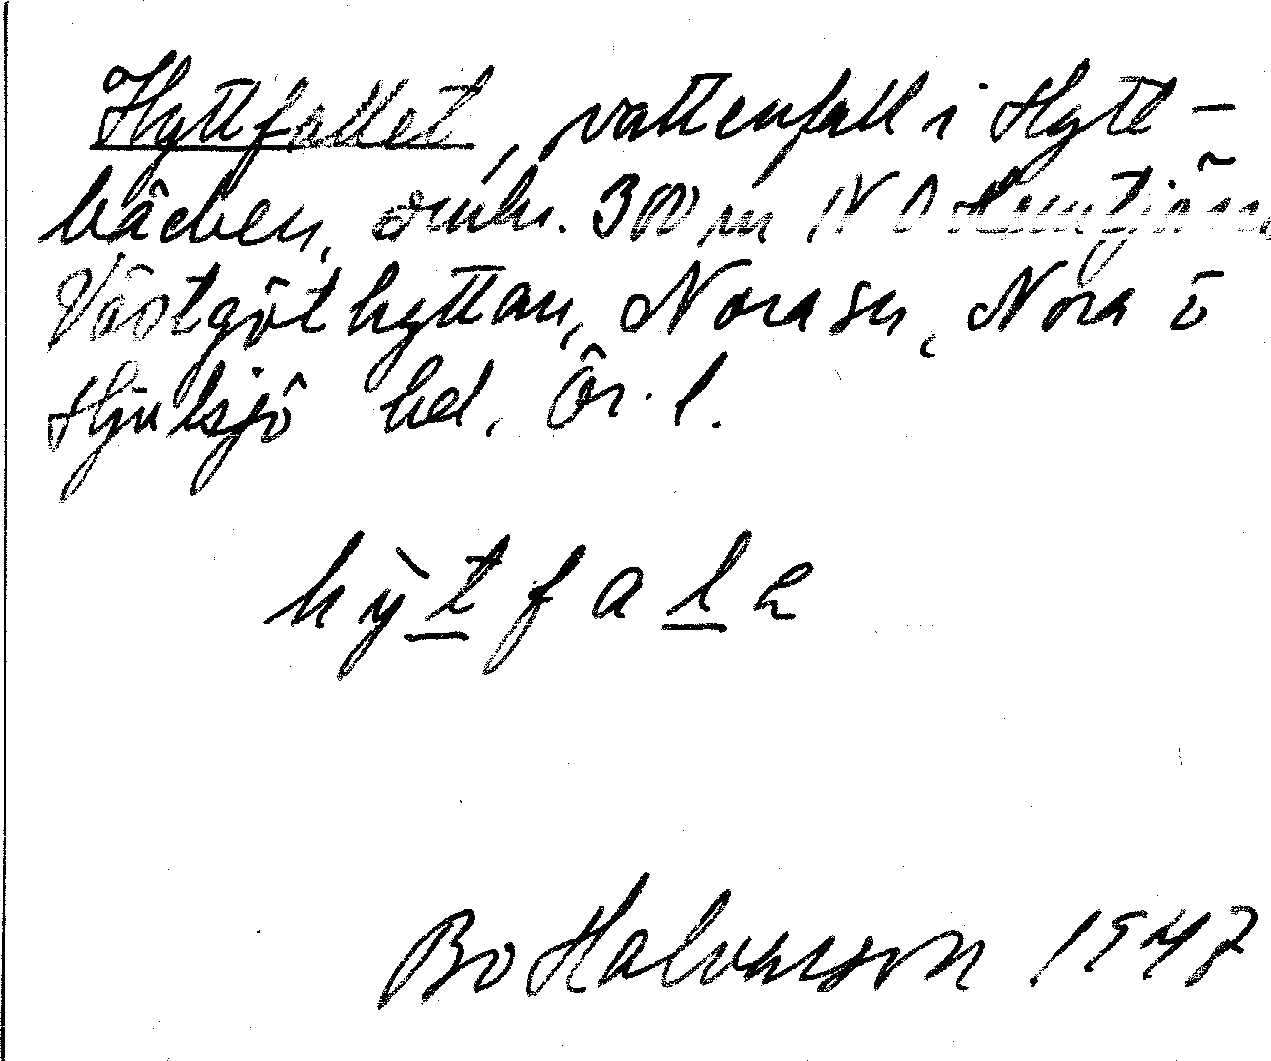 Hyttfallet, vattenfall i Hytt-
bäcken, omkr. 300 m NO
Västgöthyttan, Nora sn, Nora o
Hjulsjö hd, Ör. l.
hỳtfalə
Bo Halvarson 1947